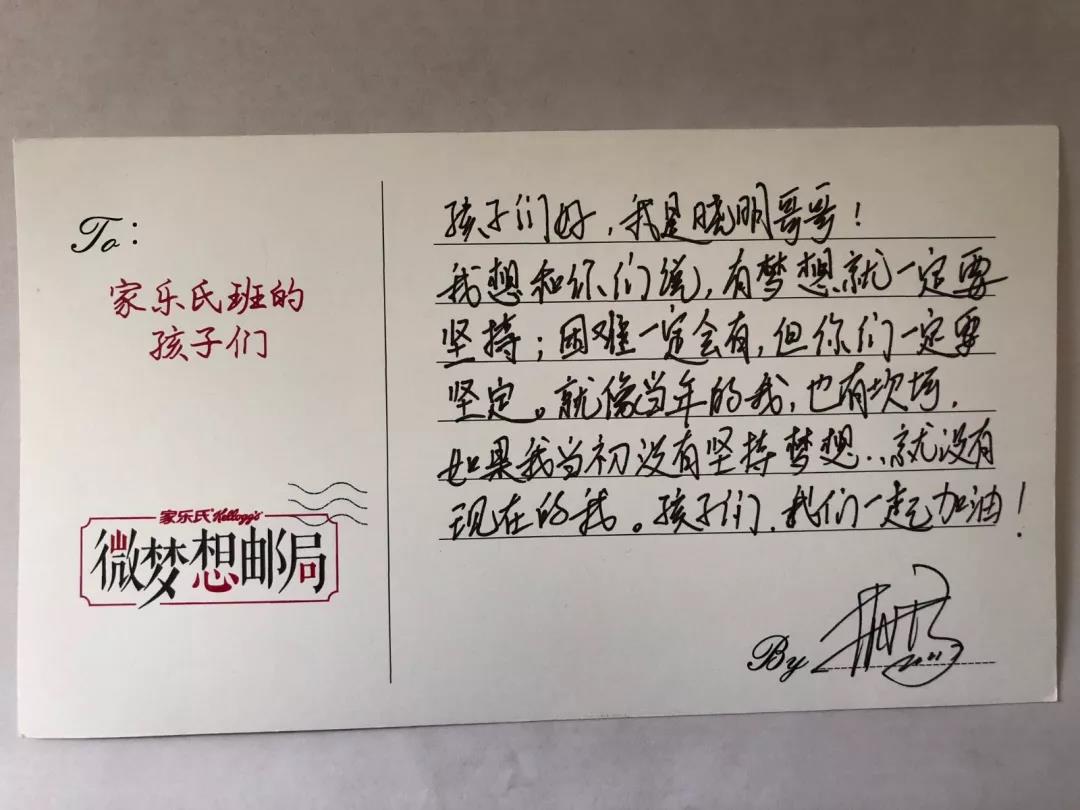 To:
家乐氏班的
孩子们
家乐氏 Kellogg's
微梦想邮局
孩子们好，我是晓明哥哥！
我想和你们说，有梦想就一定要
坚持；困难一定会有，但你们一定要
坚定。就像当年的我，也有坎坷，
如果我当初没有坚持梦想..就没有
现在的我。孩子们，我们一起加油！
By